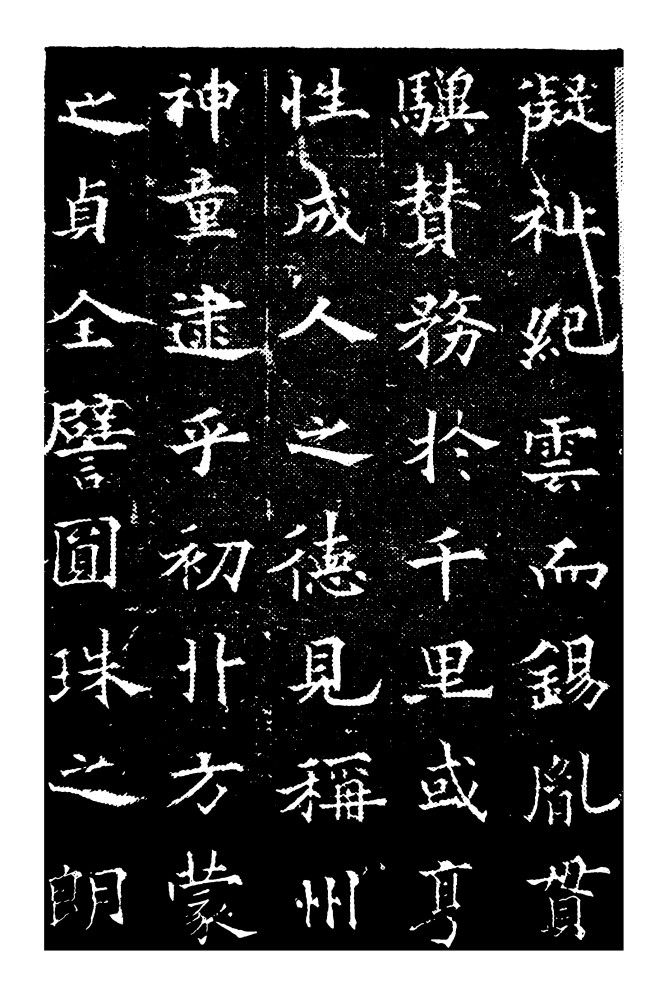 凝祉紀雲而錫胤貫
驥賛務於千里或亨
性成人之德見稱州
神童逮乎初丱方蒙
之貞全譬圓珠之朗